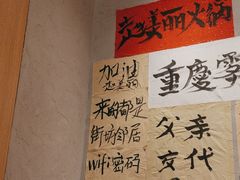 走美丽火锅
加油
走美丽
重慶
来的都是
街坊邻居
wifi密码
父亲
交代